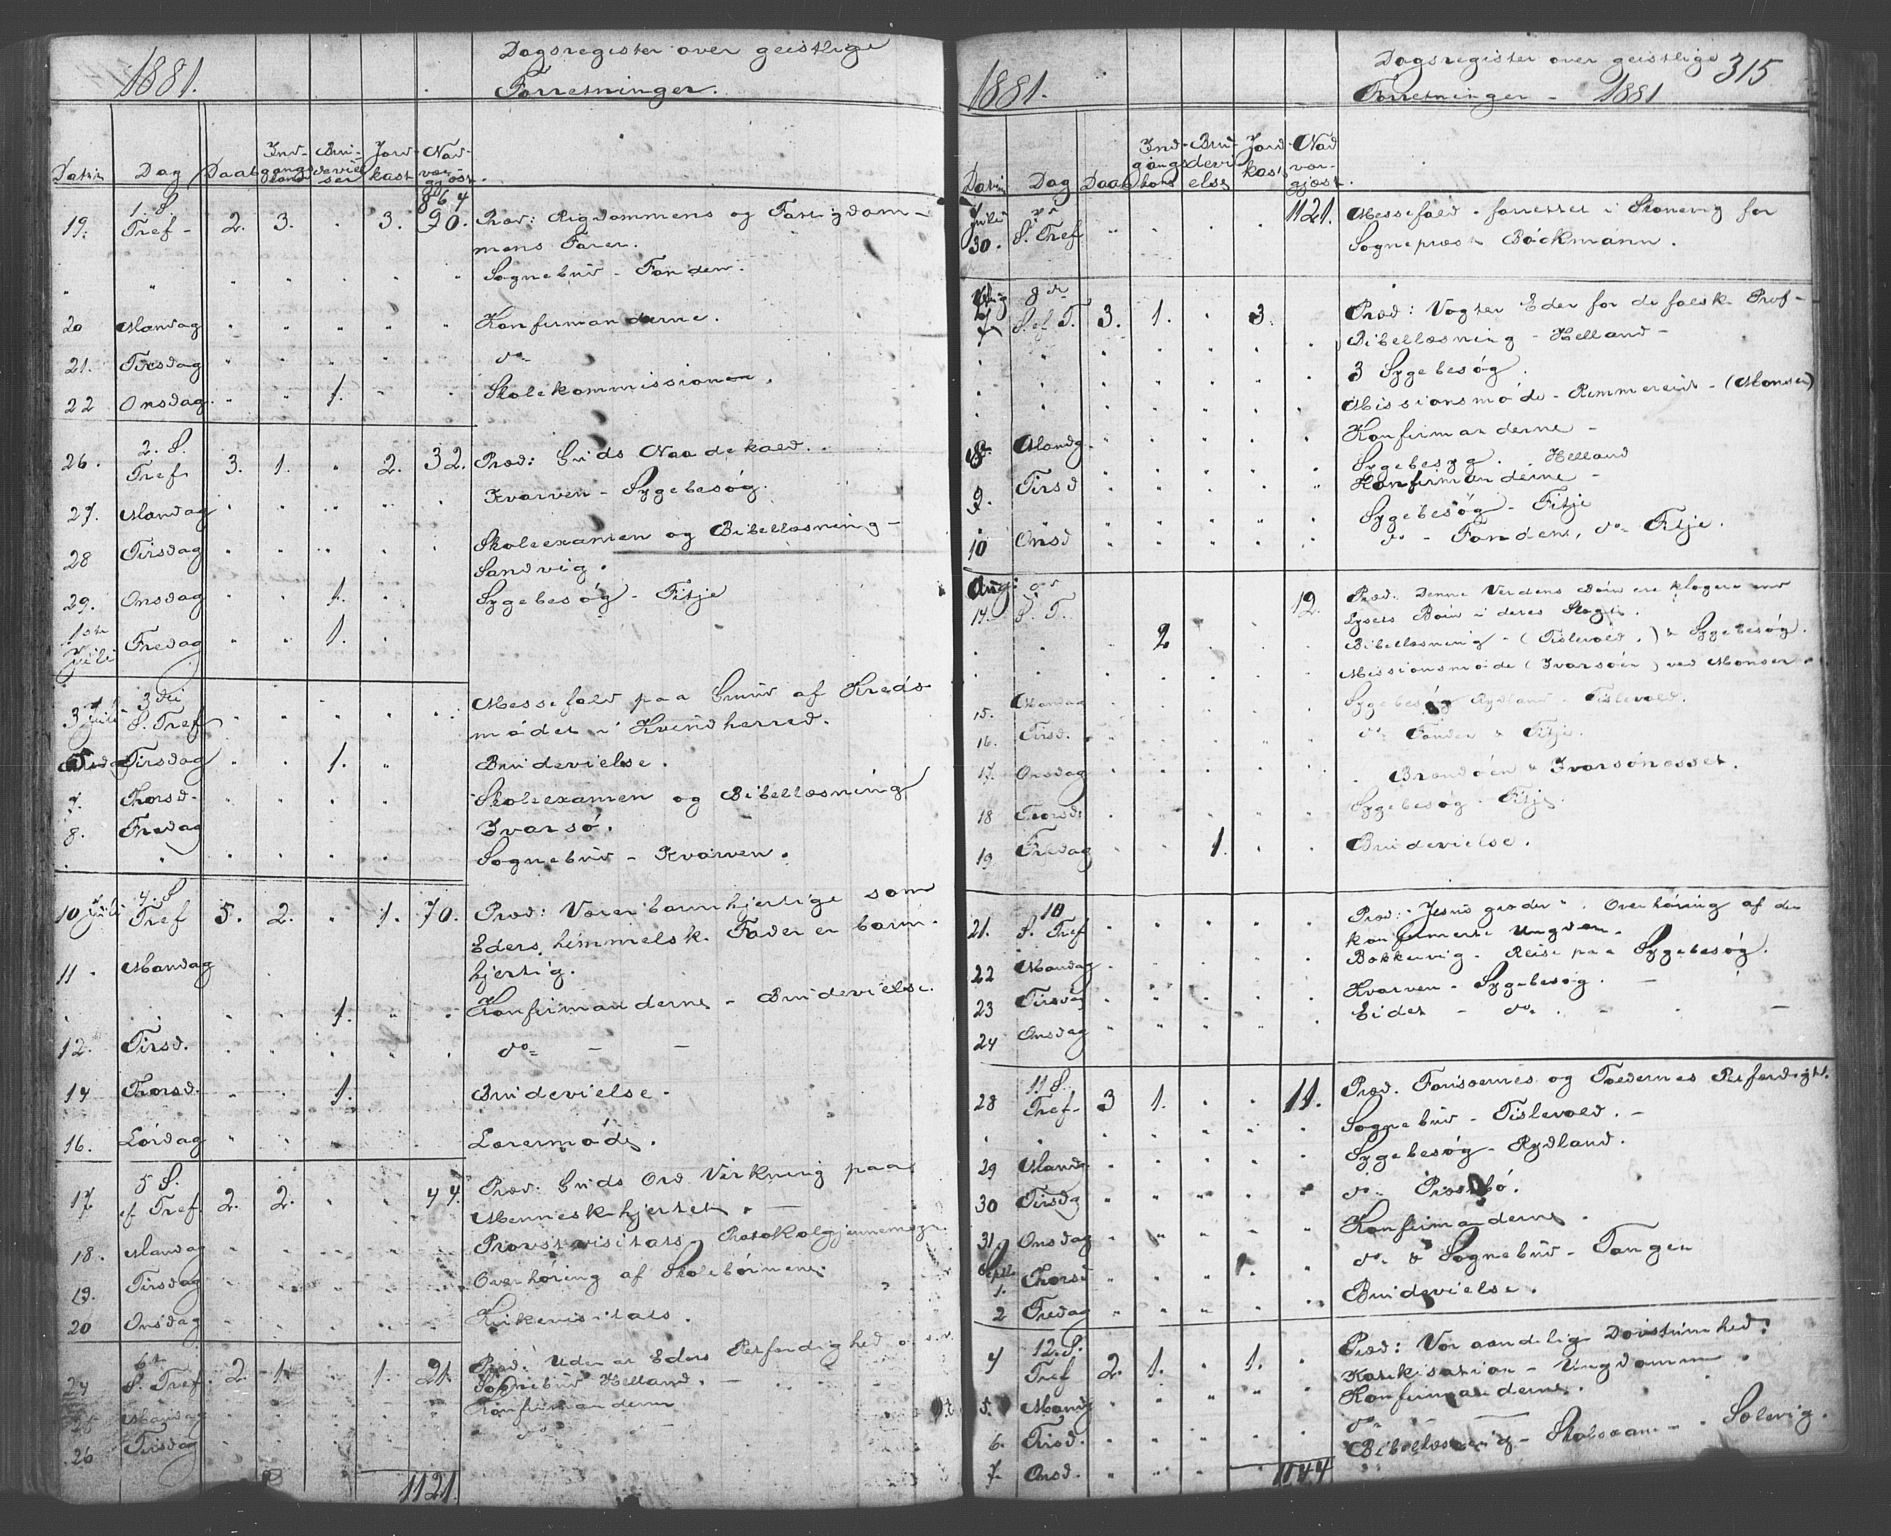 1881. Dagsregister over geistlige
Forretninger.
Datum Dag Daab Ind-gangs-kone Bru-deviel-ser Jord-kast Nad-ver-gjæst.
864
19. 1. S. Tref- 2. 3. . 3. 90. Præd: Rigdommens og Fattigdom-
mens Farer.
" " Sognebud - Fonden.
20 Mandag Konfirmanderne.
21. Tirsdag do
22 Onsdag. 1. Skolekommissionen.
26. 2. S. Tref. 3. 1. " 2. 32. Præd: Guds Naadekald.
27. Mandag Kvarven - Sygebesøg.
28 Tirsdag Skoleexamen og Bibellæsning -
Sandvig.
29. Onsdag 1. Sygebesøg - Fitje
1ste Juli Fredag 1.
3 Juli 3die S. Tref Messefald paa Grund af Kreds-
mødet i Kvindherred.
5 Tirsdag 1. Brudevielse.
7. Thorsd. Skoleexamen og Bibellæsning
8. Fredag Ivarsø.
Sognebud - Kvarven.
10 Juli 4. S Tref 5. 2. . 1. 70. Præd: Værer barmhjertige som
Eders himmelsk. Fader er barm-
11. Mandag hjertig.
1. Konfirmanderne - Brudevielse.
12. Tirsd. do - -
14 Thorsd. 1. Brudevielse.
16. Lørdag Læremøde.
17. 5 S. ef Tref. 2. 2. 44. Præd: Guds Ord Virkning paa
Menneskehjertet. -
18. Mandag Provstevisitats Protokolgjennemsyn.
19. Tirsdag Overhøring af Skolebørnene.
20 Onsdag Kirkevisitats.
24 6te S. Tref. 2. 1. 1. 21. Præd: Uden at Eders Retfærdighed
Sognebud Helland.
25 Mandag Konfirmanderne
26 Tirsdag
1121.
1881. Dagsregister over geistlige 315
Forretninger - 1881
Datum Dag Daab Ind-gangs-kone Bru-devi-else Jord-kast Nad-ver-gjæst.
Juli 30. S. Tref 1121. Messefald - forrettet i Skonevig for
Sognepræst Böckmann.
7 8de S. ef T. 3. 1. " 3. Præd: Vogter Eder for de falske Prof-
Bibellæsning - Helland -
3 Sygebesøg.
Missionsmøde - Rimmereid - (Monsen)
8 Mandg. Konfirmanderne -
Sygebesøg. Helland
9. Tirsd Konfirmanderne -
Sygebesøg - Fitje
10 Onsd do - Fonden, do Fitje.
Aug: 14. 9de S. T. 12. Præd: Denne Verdens Børn ere klogere end
Lysets Børn i deres Slægt.
2 Bibellæsning - (Tislevold.) & Sygebesøg.
Missionsmøde (Ivarsöen) ved Monsen.
15. Mandag Sygebesøg Rydland - Tislevold.
16. Tirsd. do Fonden & Fitje.
17. Onsdag Brandöen & Ivarsönesset.
18 Thorsd. Sygebesøg. Fitje.
19. Fredag 1. Brudevielse.
21. 10 S. Tref Præd: "Jesus græder". Overhøring af den
konfirmerte Ungdom.
22 Mandag Bakkevig - Reise paa Sygebesøg.
23 Tirsdag Kvarven - Sygebesøg. -
24 Onsdag Eidet - do. - -
28 11 S. Tref- 3 1. . . 11. Præd. Farisæernes og Toldernes Retfærdight.
Sognebud - Tislevold. -
29 Mandg Sygebesøg - Rydland.
30 Tirsdag do Præstbø.
31. Onsdag Konfirmanderne.
Sept. 1. Thorsd do & Sognebud - Tangen
2 Fredag Brudevielse.
4 12. S. Tref 2. 1. . 1. " Præd: Vor aandelig Døvstumhed.
Katekisation - Ungdommen.
5. Mandg Konfirmanderne.
6. Tirsd. do -
7. Onsd. Bibellæsning - Skoleexam - Sælevig.
1144